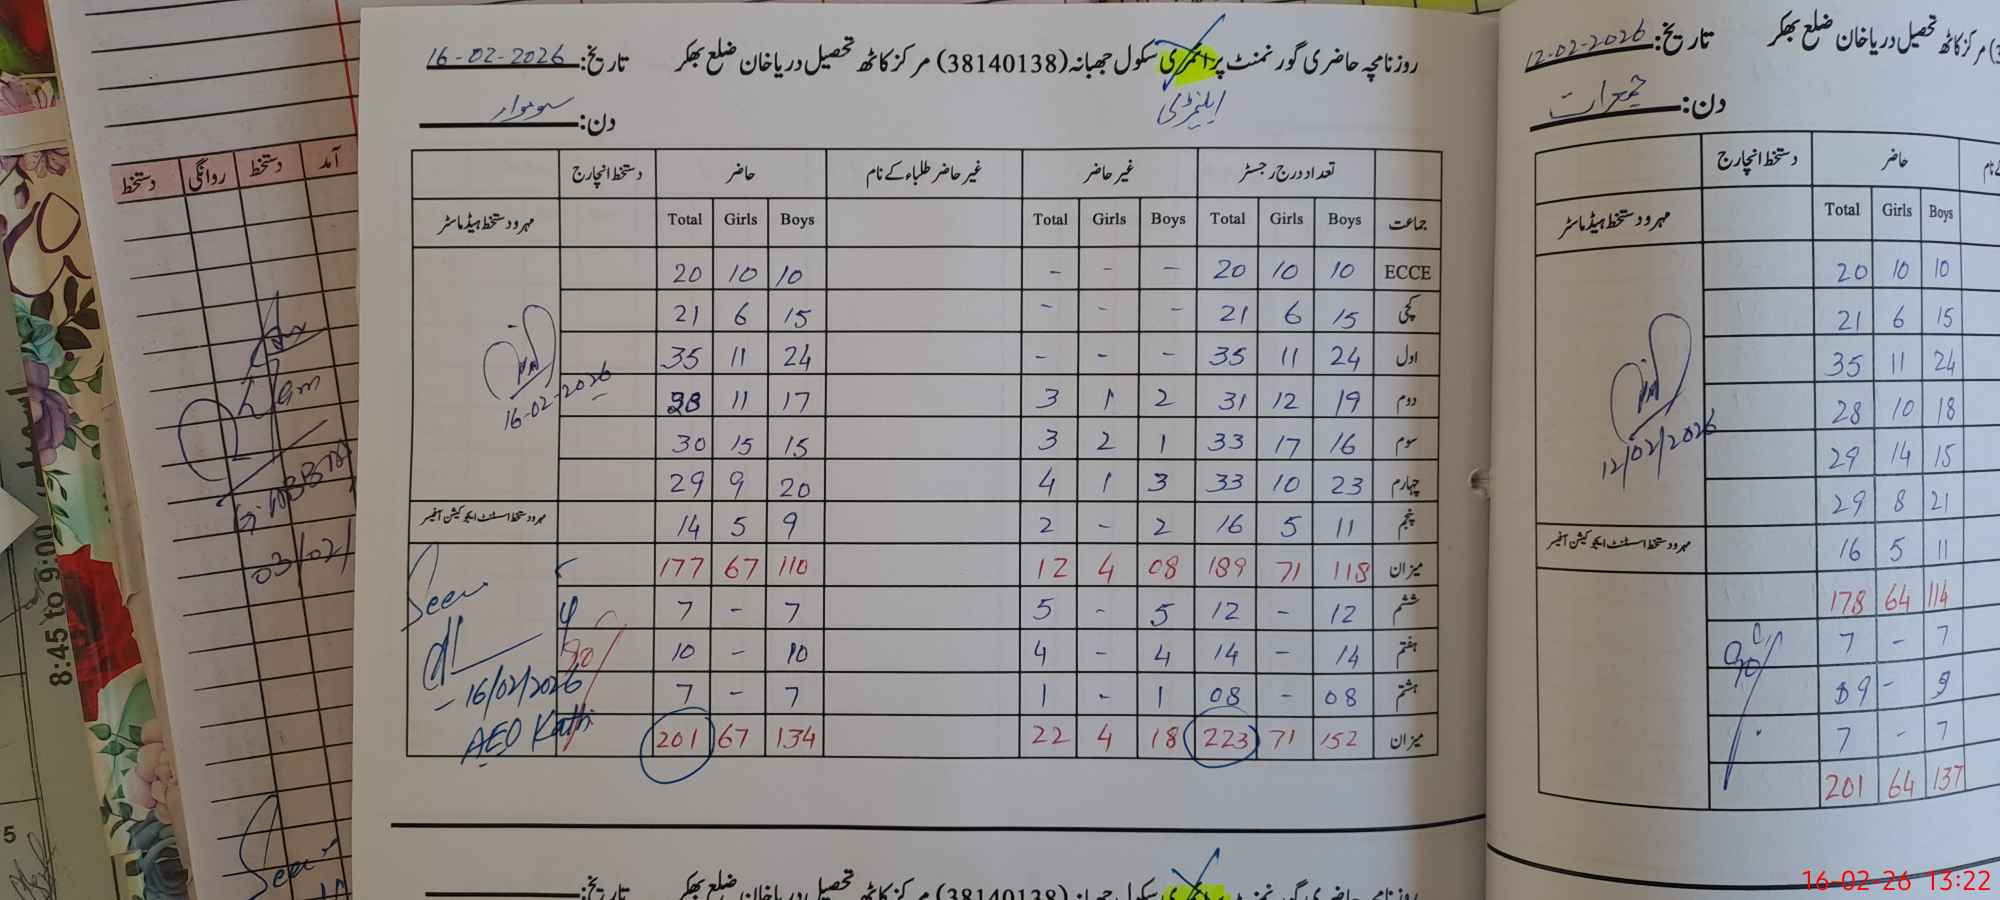 روزنامچہ حاضری گورنمنٹ پرائمری سکول جھبانہ (38140138) مرکز کاٹھ تحصیل دریا خان ضلع بھکر تاریخ: 16-02-2026
ایلیمنٹری
دن: سوموار
تعداد درج رجسٹر غیر حاضر غیر حاضر طلباء کے نام حاضر دستخط انچارج
جماعت Boys Girls Total Boys Girls Total Boys Girls Total مہر و دستخط ہیڈ ماسٹر
ECCE 10 10 20 - - - 10 10 20
کچی 15 6 21 - - - 15 6 21
اول 24 11 35 - - - 24 11 35
دوم 19 12 31 2 1 3 17 11 28
سوم 16 17 33 1 2 3 15 15 30
چہارم 23 10 33 3 1 4 20 9 29
پنجم 11 5 16 2 - 2 9 5 14
میزان 118 71 189 08 4 12 110 67 177
ششم 12 - 12 5 - 5 7 - 7
ہفتم 14 - 14 4 - 4 10 - 10
ہشتم 08 - 08 1 - 1 7 - 7
میزان 152 71 223 18 4 22 134 67 201
16-02-2026
مہر و دستخط اسسٹنٹ ایجوکیشن آفیسر
Seen
16/02/2026
AEO Kathi
مرکز کاٹھ تحصیل دریا خان ضلع بھکر تاریخ: 12-02-2026
دن: جمعرات
حاضر دستخط انچارج
Boys Girls Total مہر و دستخط ہیڈ ماسٹر
10 10 20
15 6 21
24 11 35
18 10 28
15 14 29
21 8 29
11 5 16
114 64 178
7 - 7
9 - 09
7 - 7
137 64 201
12/02/2026
مہر و دستخط اسسٹنٹ ایجوکیشن آفیسر
آمد دستخط روانگی دستخط
03/02/
Seen
8:45 to 9:00
5
روزنامچہ حاضری گورنمنٹ پرائمری سکول جھبانہ (38140138) مرکز کاٹھ تحصیل دریا خان ضلع بھکر تاریخ:
16-02-26 13:22